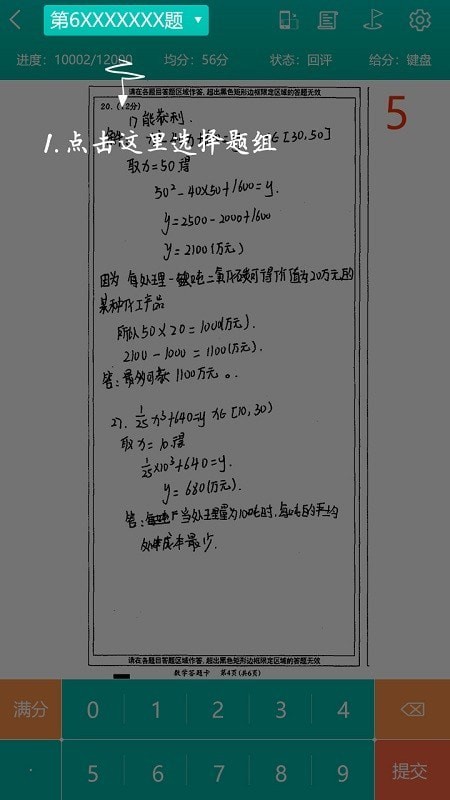 第6XXXXXXX题
进度：10002/12000 均分：56分 状态：回评 给分：键盘
请在各题目答题区域作答，超出黑色矩形边框限定区域的答题无效
20. (12分)
5
1) 能获利.
∈[30,50]
1.点击这里选择题组
取x=50得
50²-40×50+1600=y.
y=2500-2000+1600
y=2100(万元)
因为 每处理一吨二氧化碳可得价值为20万元的
某种化工产品
所以50×20=1000(万元).
2100-1000=1100(万元).
答：最多可 1100万元。
2). 1/25 x³+640=y x∈[10,30)
取x=10得
1/25×10³+640=y.
y=680(万元).
答：当处理量为10吨时，每吨的平均
处理成本最少.
请在各题目答题区域作答，超出黑色矩形边框限定区域的答题无效
数学答题卡 第4页(共6页)
满分 0 1 2 3 4
· 5 6 7 8 9 提交